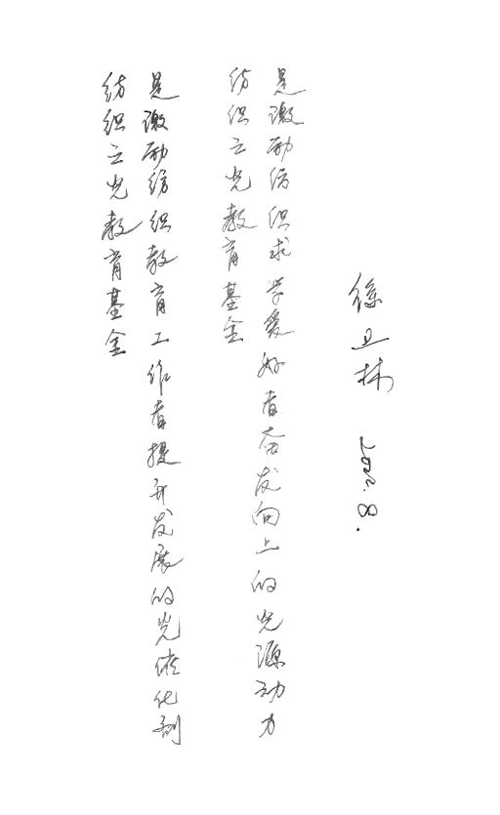 纺织之光教育基金
是激励纺织教育工作者提升发展的光催化剂
纺织之光教育基金
是激励纺织求学爱好者奋发向上的光源动力
徐卫林